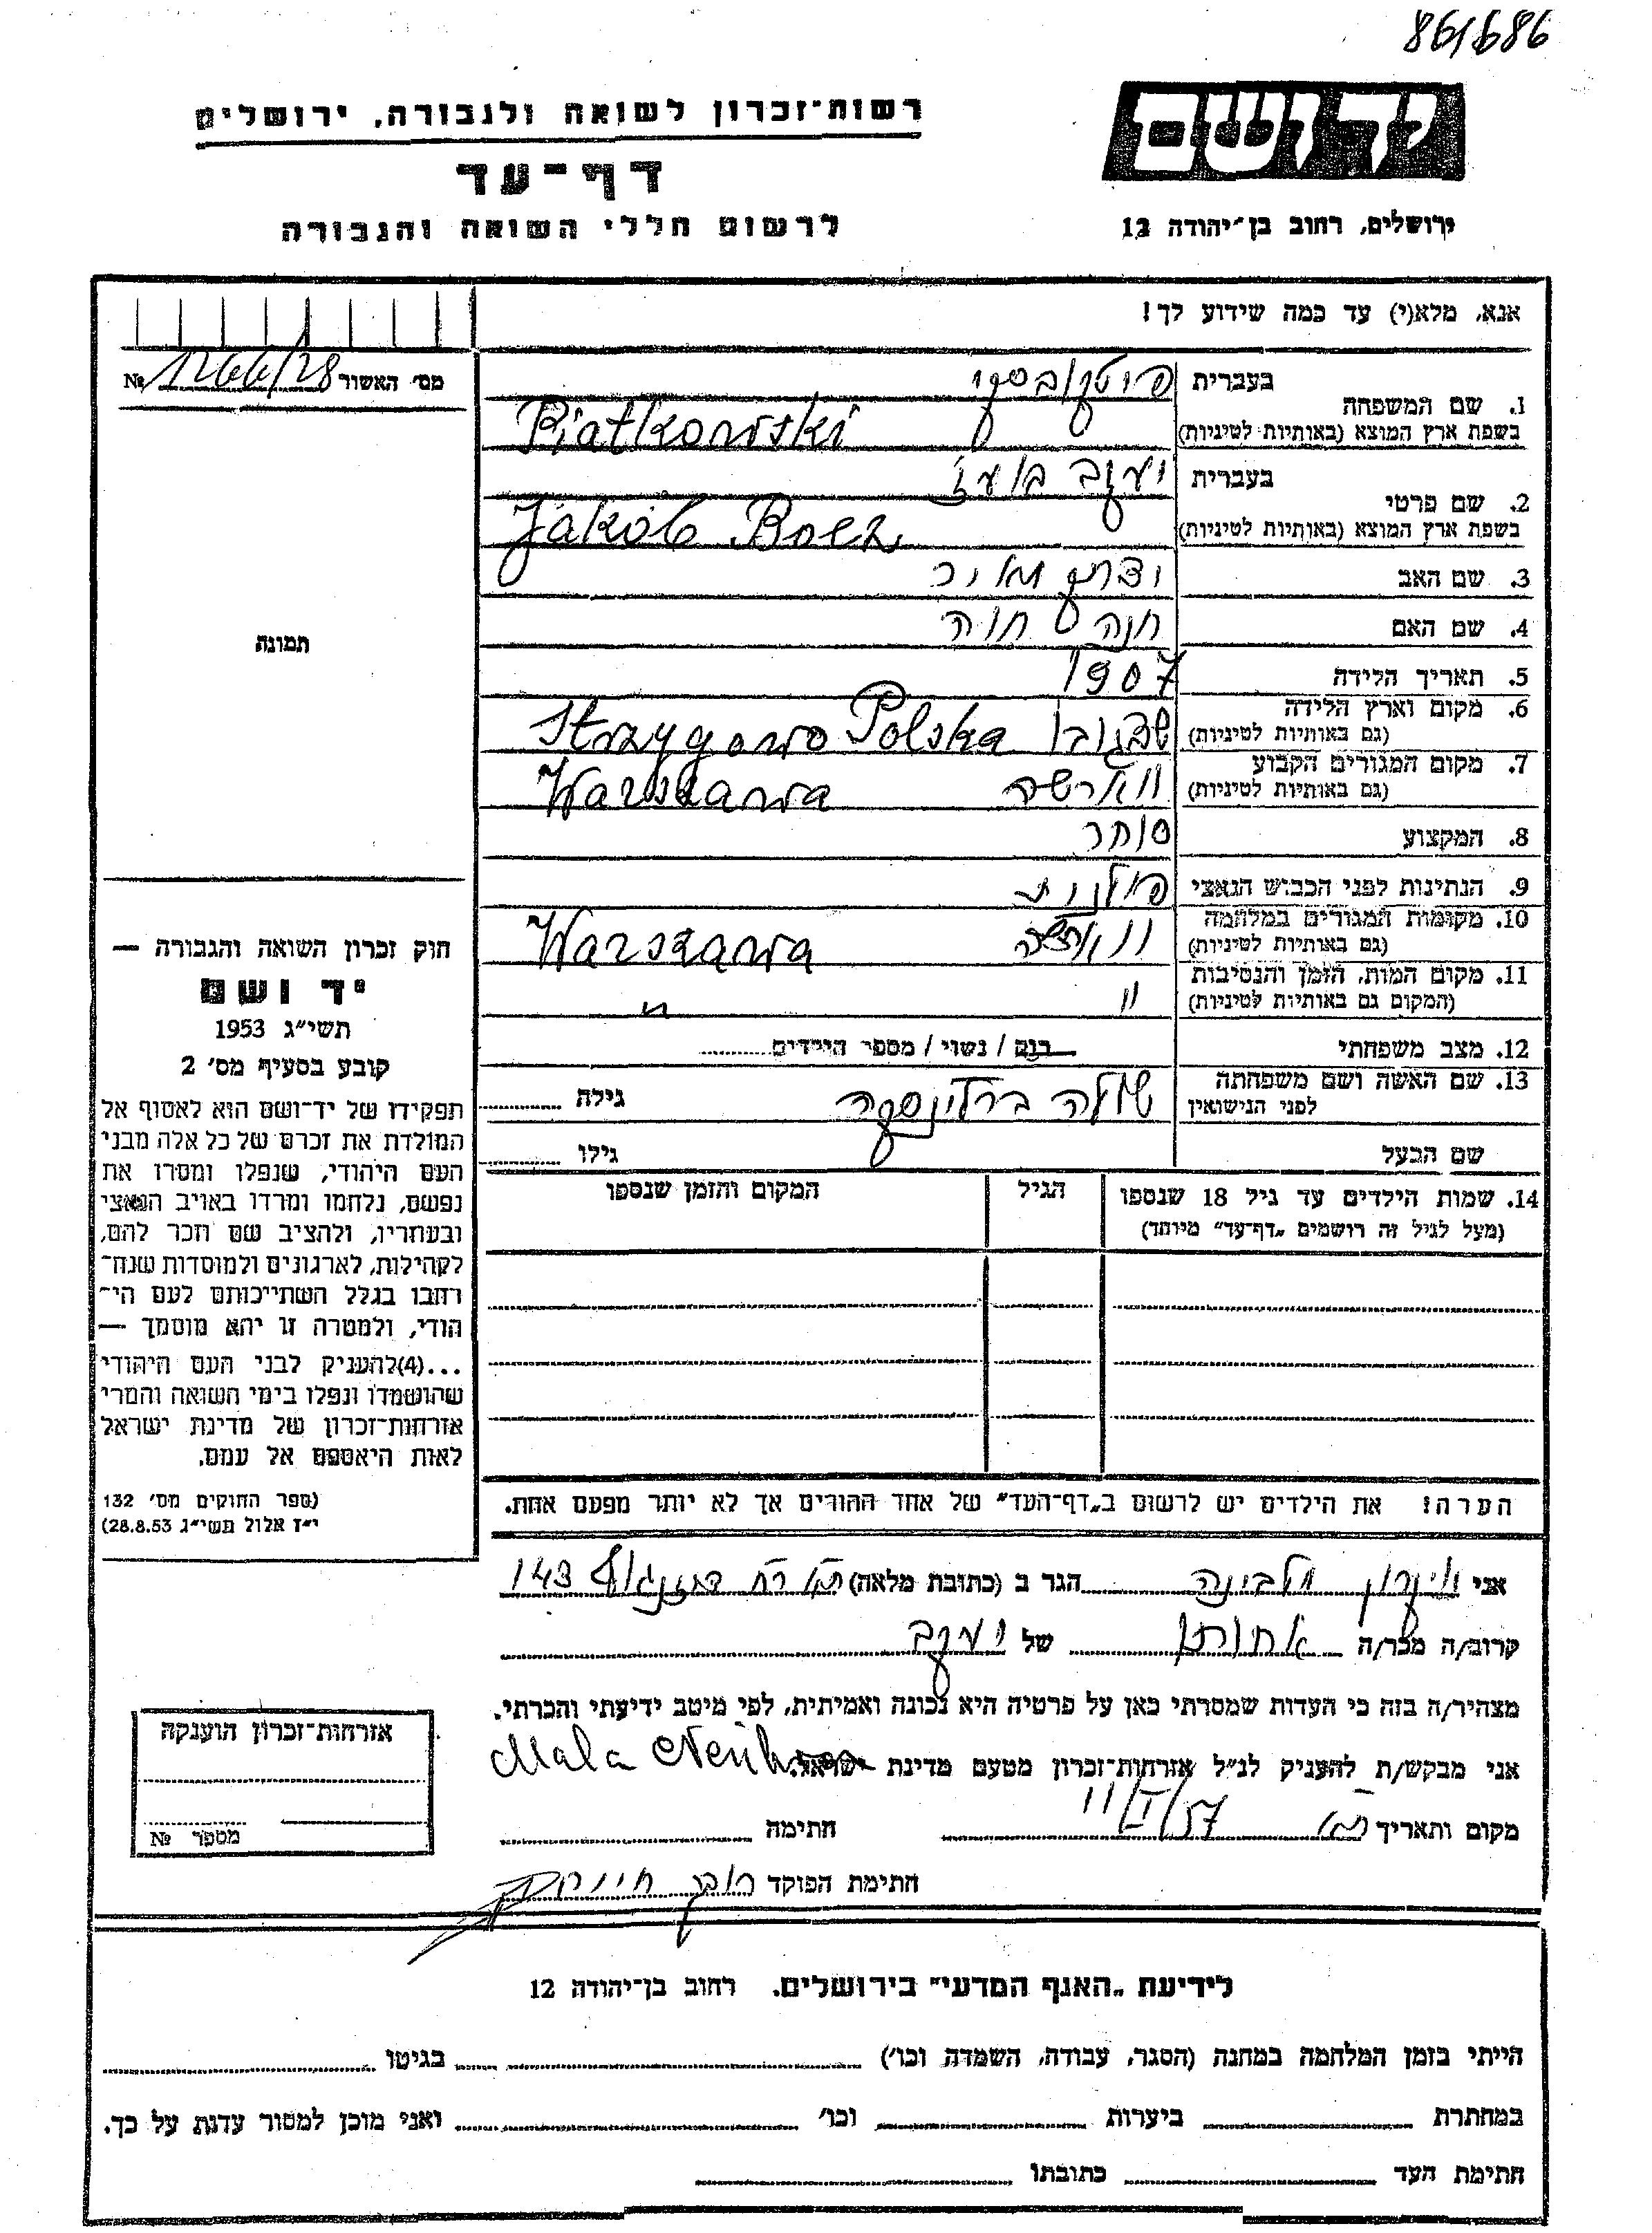 861686
רשות־זכרון לשואה ולגבורה, ירושלים
דף־עד
לרשום חללי השואה והגבורה
ידושם
ירושלים, רחוב בן־יהודה 12
אנא, מלא(י) עד כמה שידוע לך!
מס׳ האשור № 1266/28
1. שם המשפחה
בעברית פיטקובסקי
בשפת ארץ המוצא (באותיות לטיניות) Piatkowski
2. שם פרטי
בעברית יעקב בועז
בשפת ארץ המוצא (באותיות לטיניות) Jakób Boez
3. שם האב מאיר
4. שם האם חנה חוה
5. תאריך הלידה 1907
6. מקום וארץ הלידה (גם באותיות לטיניות) Strzygowo Polska
7. מקום המגורים הקבוע (גם באותיות לטיניות) ווארשה Warszawa
8. המקצוע סוחר
9. הנתינות לפני הכבוש הנאצי פולנית
10. מקומות המגורים במלחמה (גם באותיות לטיניות) ווארשה Warszawa
11. מקום המות, הזמן והנסיבות (המקום גם באותיות לטיניות) " "
12. מצב משפחתי רווק / נשוי / מספר הילדים
13. שם האשה ושם משפחתה לפני הנישואין גילה
שם הבעל גילו
14. שמות הילדים עד גיל 18 שנספו (מעל לגיל זה רושמים „דף־עד" מיוחד) הגיל המקום והזמן שנספו
הערה! את הילדים יש לרשום ב„דף־העד" של אחד ההורים אך לא יותר מפעם אחת.
תמונה
חוק זכרון השואה והגבורה —
יד ושם
תשי״ג 1953
קובע בסעיף מס׳ 2
תפקידו של יד־ושם הוא לאסוף אל
המולדת את זכרם של כל אלה מבני
העם היהודי, שנפלו ומסרו את
נפשם, נלחמו ומרדו באויב הנאצי
ובעוזריו, ולהציב שם וזכר להם,
לקהילות, לארגונים ולמוסדות שנח־
רבו בגלל השתייכותם לעם הי־
הודי, ולמטרה זו יהא מוסמך —
...(4)להעניק לבני העם היהודי
שהושמדו ונפלו בימי השואה והמרי
אזרחות־זכרון של מדינת ישראל
לאות היאספם אל עמם.
(ספר החוקים מס׳ 132
י״ז אלול תשי״ג 28.8.53)
אני מלבינה הגר ב (כתובת מלאה) דיזנגוף 143
קרוב/ה מכר/ה אחותו של יעקב
מצהיר/ה בזה כי העדות שמסרתי כאן על פרטיה היא נכונה ואמיתית, לפי מיטב ידיעתי והכרתי.
אני מבקש/ת להעניק לנ״ל אזרחות־זכרון מטעם מדינת ישראל. Mala
מקום ותאריך ת״א 11/I/57 חתימה
חתימת הפוקד
אזרחות־זכרון הוענקה
מספר №
לידיעת „האגף המדעי" בירושלים, רחוב בן־יהודה 12
הייתי בזמן המלחמה במחנה (הסגר, עבודה, השמדה וכו׳) בגיטו
במחתרת ביערות וכו׳ ואני מוכן למסור עדות על כך.
חתימת העד כתובתו